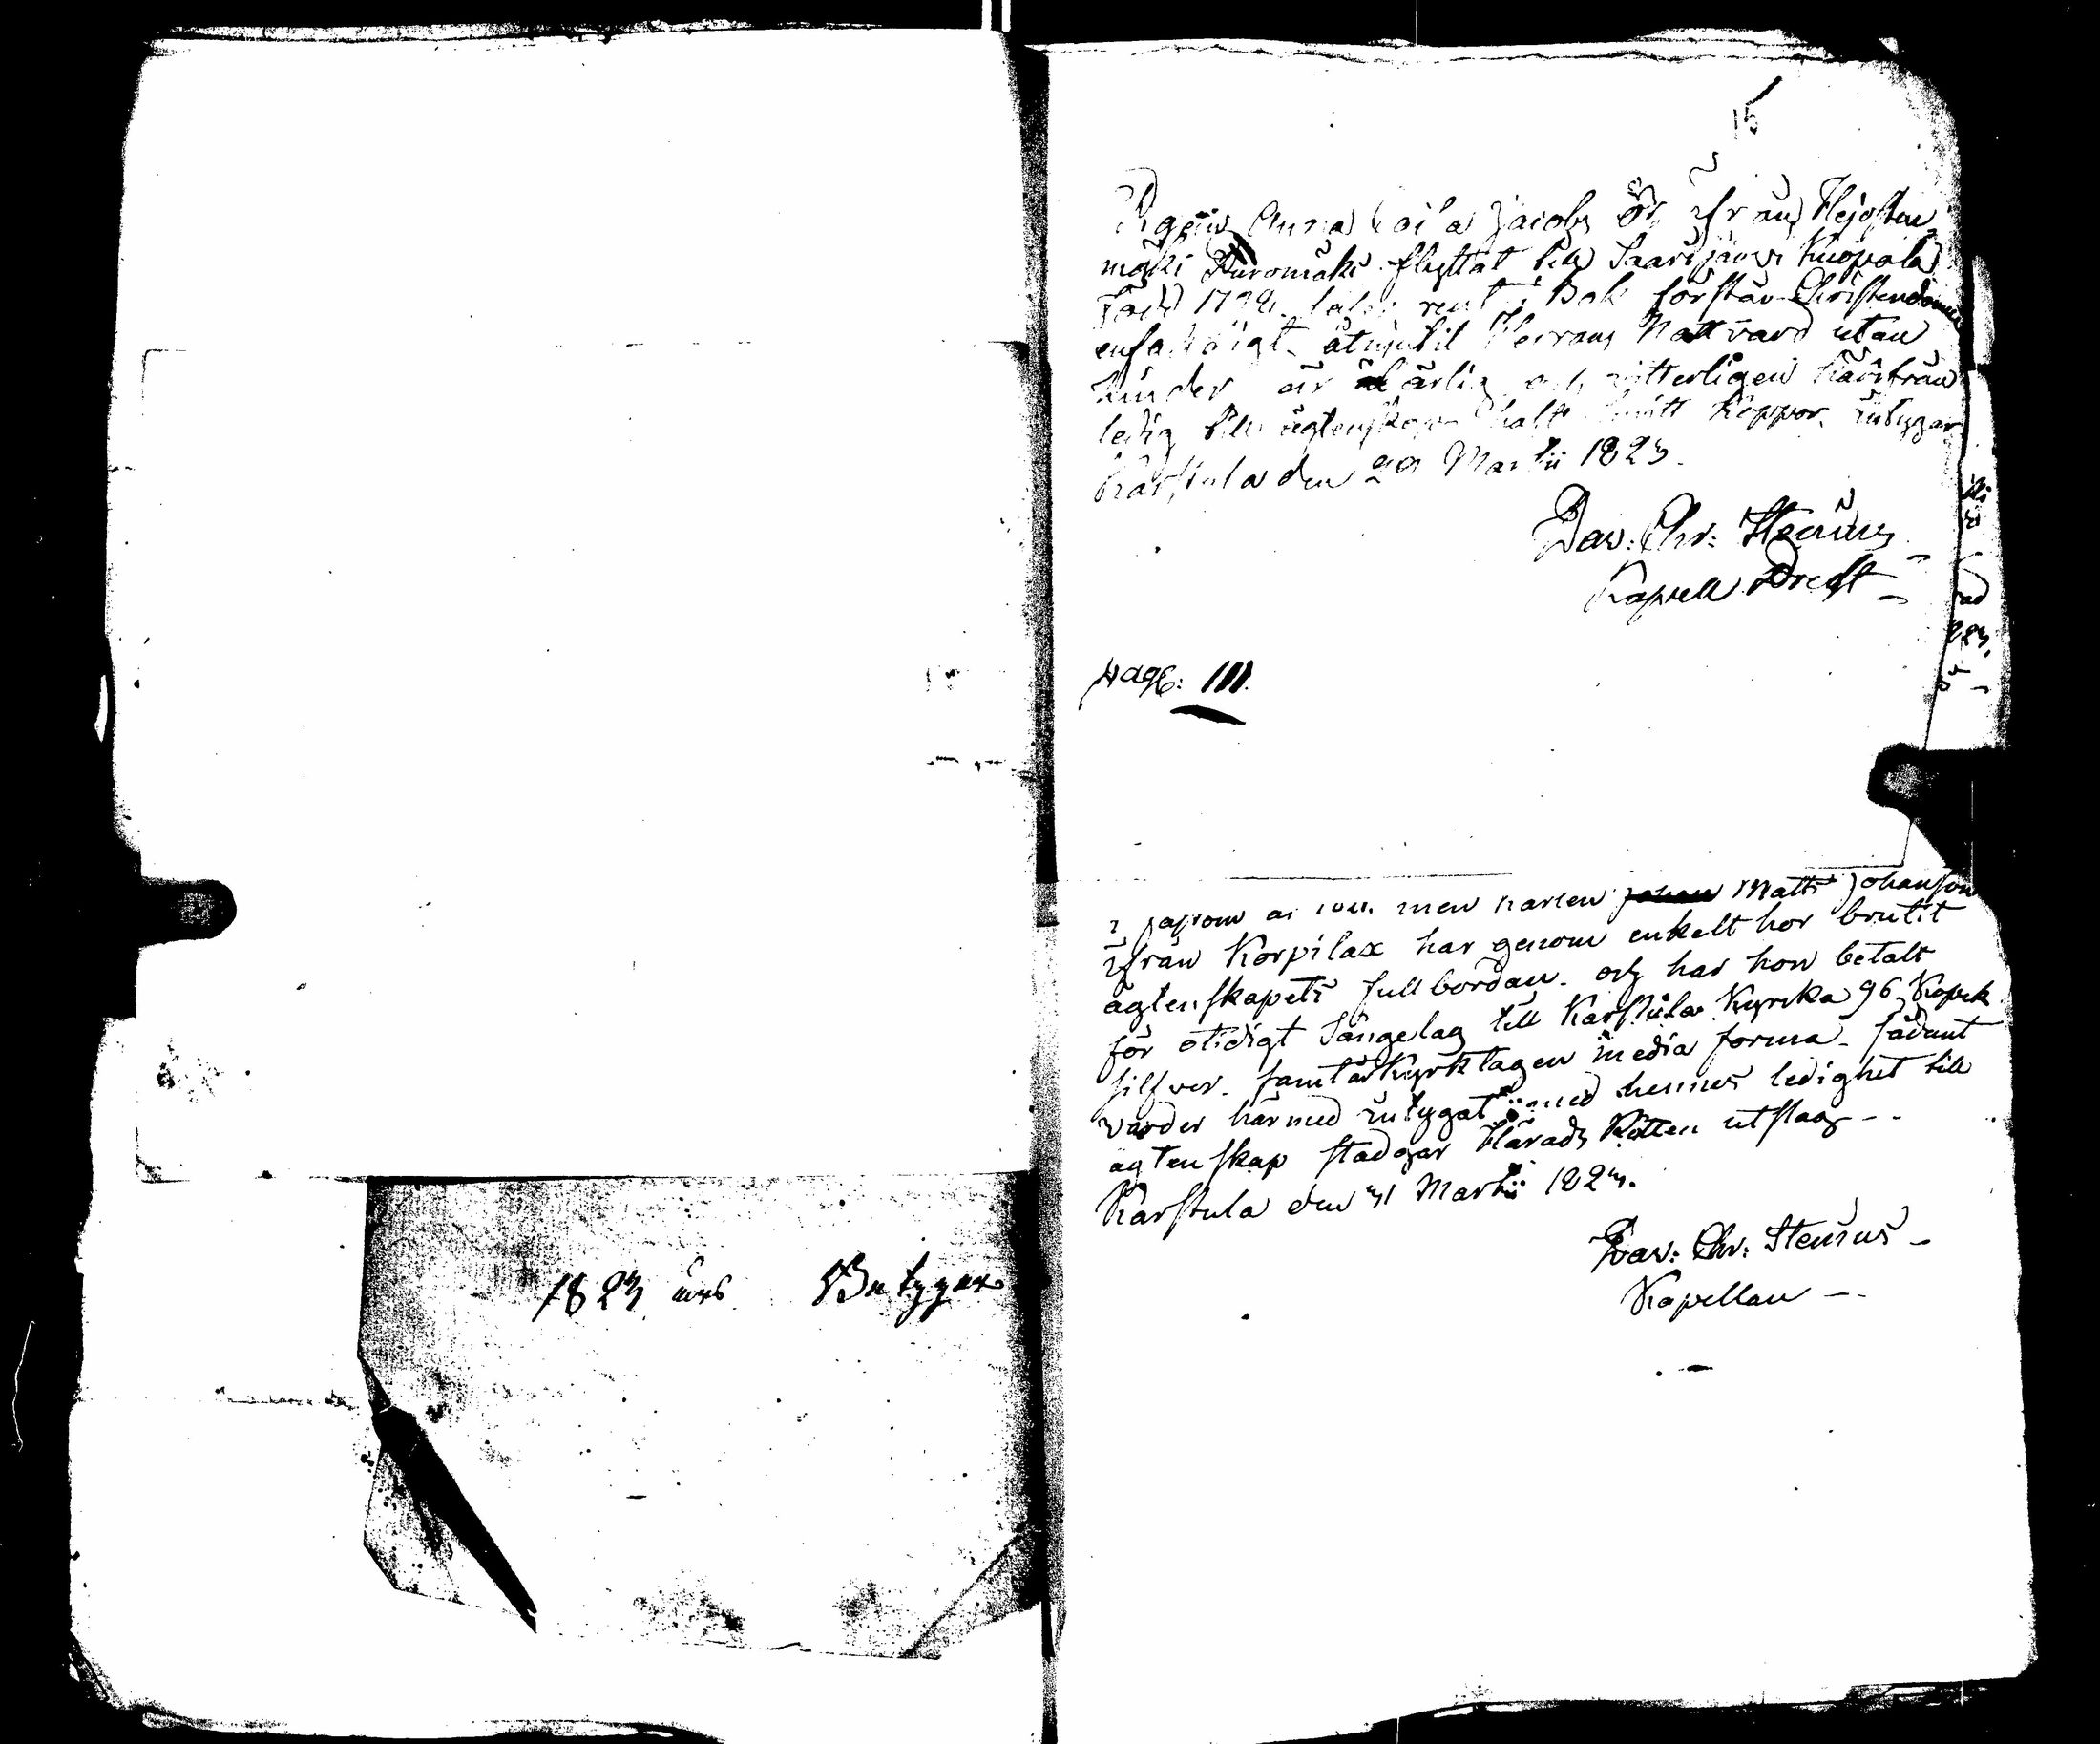 1823 års Betyger
15
Pigan Anna Caisa Jacobs dr. ifrån Hejosten
mäki Puromäki flyttat till Saarijärvi Kuopala
född 179 läser rent i Bok förstår Christendomen
enfaldigt. åtnjutit Herrans Nattvard utan
hinder är ärlig och härifrån
ledig till ägtenskap haft Koppor. intygar
Karstula den 29 Martii 1823.
Dav: Chr: Stenius
Kapell Prest
pag: 111.
men karlen Matts Johansson
ifrån Korpilax har genom enkelt hor brutit
ägtenskapets fullbordan. och har hon betalt
för otidigt Sängelag till Karstula Kyrcka 96 Kopek
silfver. samt är Kyrktagen media forma. sådant
varder härmed intygat med hennes ledighet till
ägtenskap stadgar Härads Rätten utslag
Karstula den 31 Martii 1823.
Dav: Chr: Stenius
Kapellan